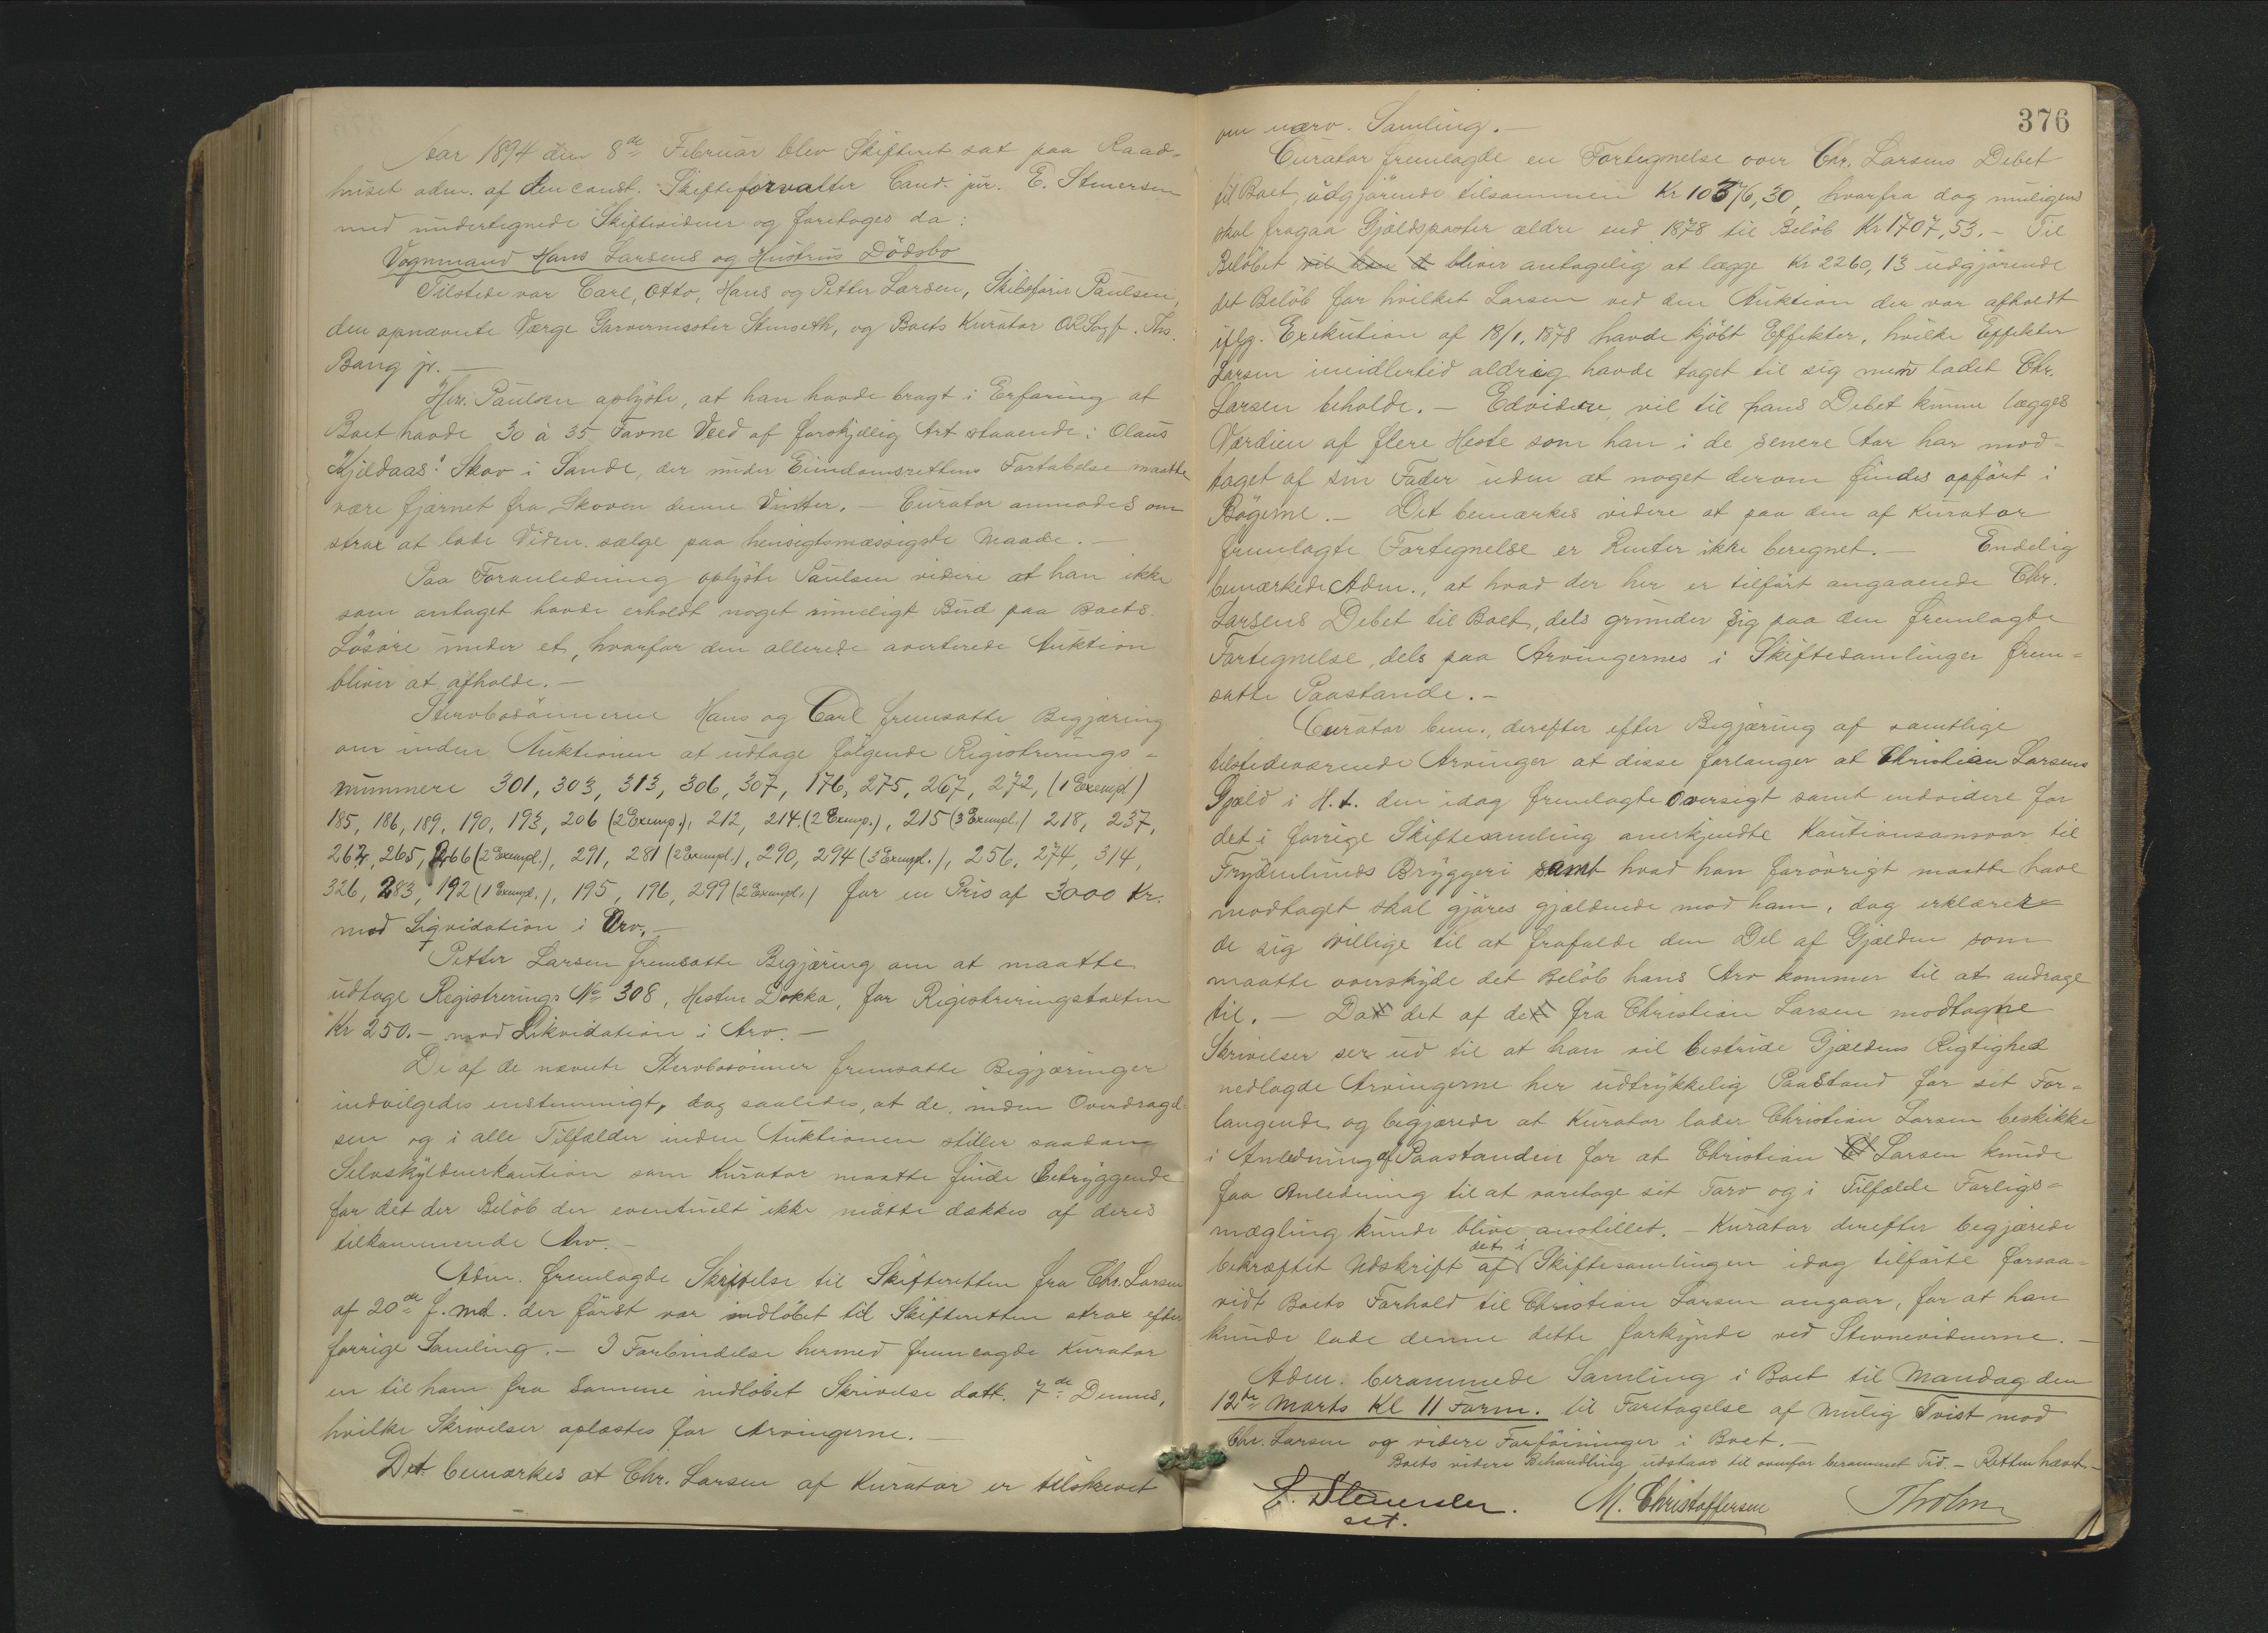 Aar 1894 den 8de Februar blev Skifteret sat paa Raad-
huset adm. af den const. Skifteforvalter Cand. jur. E. Stenersen
med undertegnede Skiftevidner og foretoges da:
Vognmand Hans Larsens og Hustrus Dödsbo
Tilstede var Carl, Otto, Hans og Petter Larsen, Skibsförer Paulsen,
den opnævnte Værge Garvermester Stenseth, og Boets Kurator ORSagf. Ths.
Bang jr. —
Hrr. Paulsen oplyste, at han havde bragt i Erfaring at
Boet havde 30 à 35 Favne Veed af forskjellig Art staaende i Olaus
"Kjeldaas" Skov i Sande, der under Eiendomsrettens Fortabelse maatte
være fjernet fra Skoven denne Vinter. — Curator anmodes om
strax at lade Viden sælge paa hensigtsmæssigste Maade. —
Paa Foranledning oplyste Paulsen videre at han ikke
som antaget havde erholdt noget rimeligt Bud paa Boets
Lösöre under et, hvorfor den allerede averterede Auktion
bliver at afholde. —
Stervbosönnerne Hans og Carl fremsatte Begjæring
om inden Auktionen at udtage fölgende Registrerings-
nummere 301, 303, 313, 306, 307, 176, 275, 267, 272, (1 Exempl)
185, 186, 189, 190, 193, 206 (2 Exemp.), 212, 214 (2 Exemp.), 215 (3 Exempl.) 218, 237,
264, 265, 266 (2 Exempl.), 291, 281 (2 Exempl.), 290, 294 (3 Exempl.), 256, 274, 314,
326, 283, 192 (1 Exempl.), 195, 196, 299 (2 Exempl.) for en Pris af 3000 Kr.
mod Liqvidation i Arv. —
Petter Larsen fremsatte Begjæring om at maatte
udtage Registrerings No 308, Hesten Dokka, for Registreringstaxten
Kr 250. — mod Likvidation i Arv. —
De af de nævnte Stervbosönner fremsatte Begjæringer
indvilgedes enstemmigt, dog saaledes, at de inden Overdragel-
sen og i alle Tilfælder inden Auktionen stiller saadan
Selvskyldnerkaution som Kurator maatte finde betryggende
for det der Belöb der eventuelt ikke måtte dækkes af deres
tilkommende Arv. —
Adm. fremlagde Skrivelse til Skifteretten fra Chr. Larsen
af 20de f. md. der först var indlöbet til Skifteretten strax efter
forrige Samling. — I Forbindelse hermed fremlagde Kurator
en til ham fra Samme indlöbet Skrivelse datt. 7de Dennes,
hvilke Skrivelser oplæstes for Arvingerne. —
Det bemærkes at Chr. Larsen af Kurator er tilskrevet
376
om nærv. Samling. —
Curator fremlagde en Fortegnelse over Chr. Larsens Debet
til Boet, udgjörende tilsammen Kr 10376,30, hvorfra dog muligens
skal fragaa Gjældsposter ældre end 1878 til Belöb Kr 1707,53. — Til
Belöbet vil han d bliver antagelig at lægge Kr 2260,13 udgjörende
det Belöb for hvilket Larsen ved den Auktion der var afholdt
iflg. Exekution af 18/1, 1878 havde kjöbt Effekter, hvilke Effekter
Larsen imidlertid aldrig havde taget til sig men ladet Chr.
Larsen beholde. — Edvidere vil til hans Debet kunne lægges
Værdien af flere Heste som han i de senere Aar har mod-
taget af sin Fader uden at noget derom findes opfört i
Bögerne. — Det bemærkes videre at paa den af Kurator
fremlagte Fortegnelse er Renter ikke beregnet. — Endelig
bemærkede Adm., at hvad der her er tilfört angaaende Chr.
Larsens Debet til Boet, dels grunder sig paa den fremlagte
Fortegnelse, dels paa Arvingernes i Skiftesamlinger frem-
satte Paastande. —
Curator bem., derefter efter Begjæring af samtlige
tilstedeværende Arvinger at disse forlanger at Christian Larsens
Gjæld i H. t. den idag fremlagte Oversigt samt endvidere for
det i forrige Skiftesamling anerkjendte Kautionsansvar til
Frydenlunds Bryggeri samt hvad han forövrigt maatte have
modtaget skal gjöres gjældende mod ham, dog erklærer
de sig villige til at frafalde den Del af Gjælden som
maatte overskyde det Belöb hans Arv kommer til at andrage
til. — Da det af de fra Christian Larsen modtagne
Skrivelser ser ud til at han vil bestride Gjældens Rigtighed
nedlagde Arvingerne her udtrykkelig Paastand for sit For-
langende og begjærede at Kurator lader Christian Larsen beskikke
i Anledning af Paastanden for at Christian Larsen kunde
faa Anledning til at varetage sit Tarv og i Tilfælde Forligs-
mægling kunde blive anstillet. — Kurator derefter begjærede
bekræftet Udskrift af det i Skiftesamlingen idag tilförte forsaa-
vidt Boets Forhold til Christian Larsen angaar, for at han
kunde lade denne dette forkynde ved Stevnevidnerne. —
Adm. berammede Samling i Boet til Mandag den
12te Marts Kl 11 Form. til Foretagelse af mulig Tvist mod
Chr. Larsen og videre Forföininger i Boet. —
Boets videre Behandling udstaar til ovenfor berammet Tid. — Retten hævet. —
E. Stenersen. M. Christoffersen Tholm
cst.